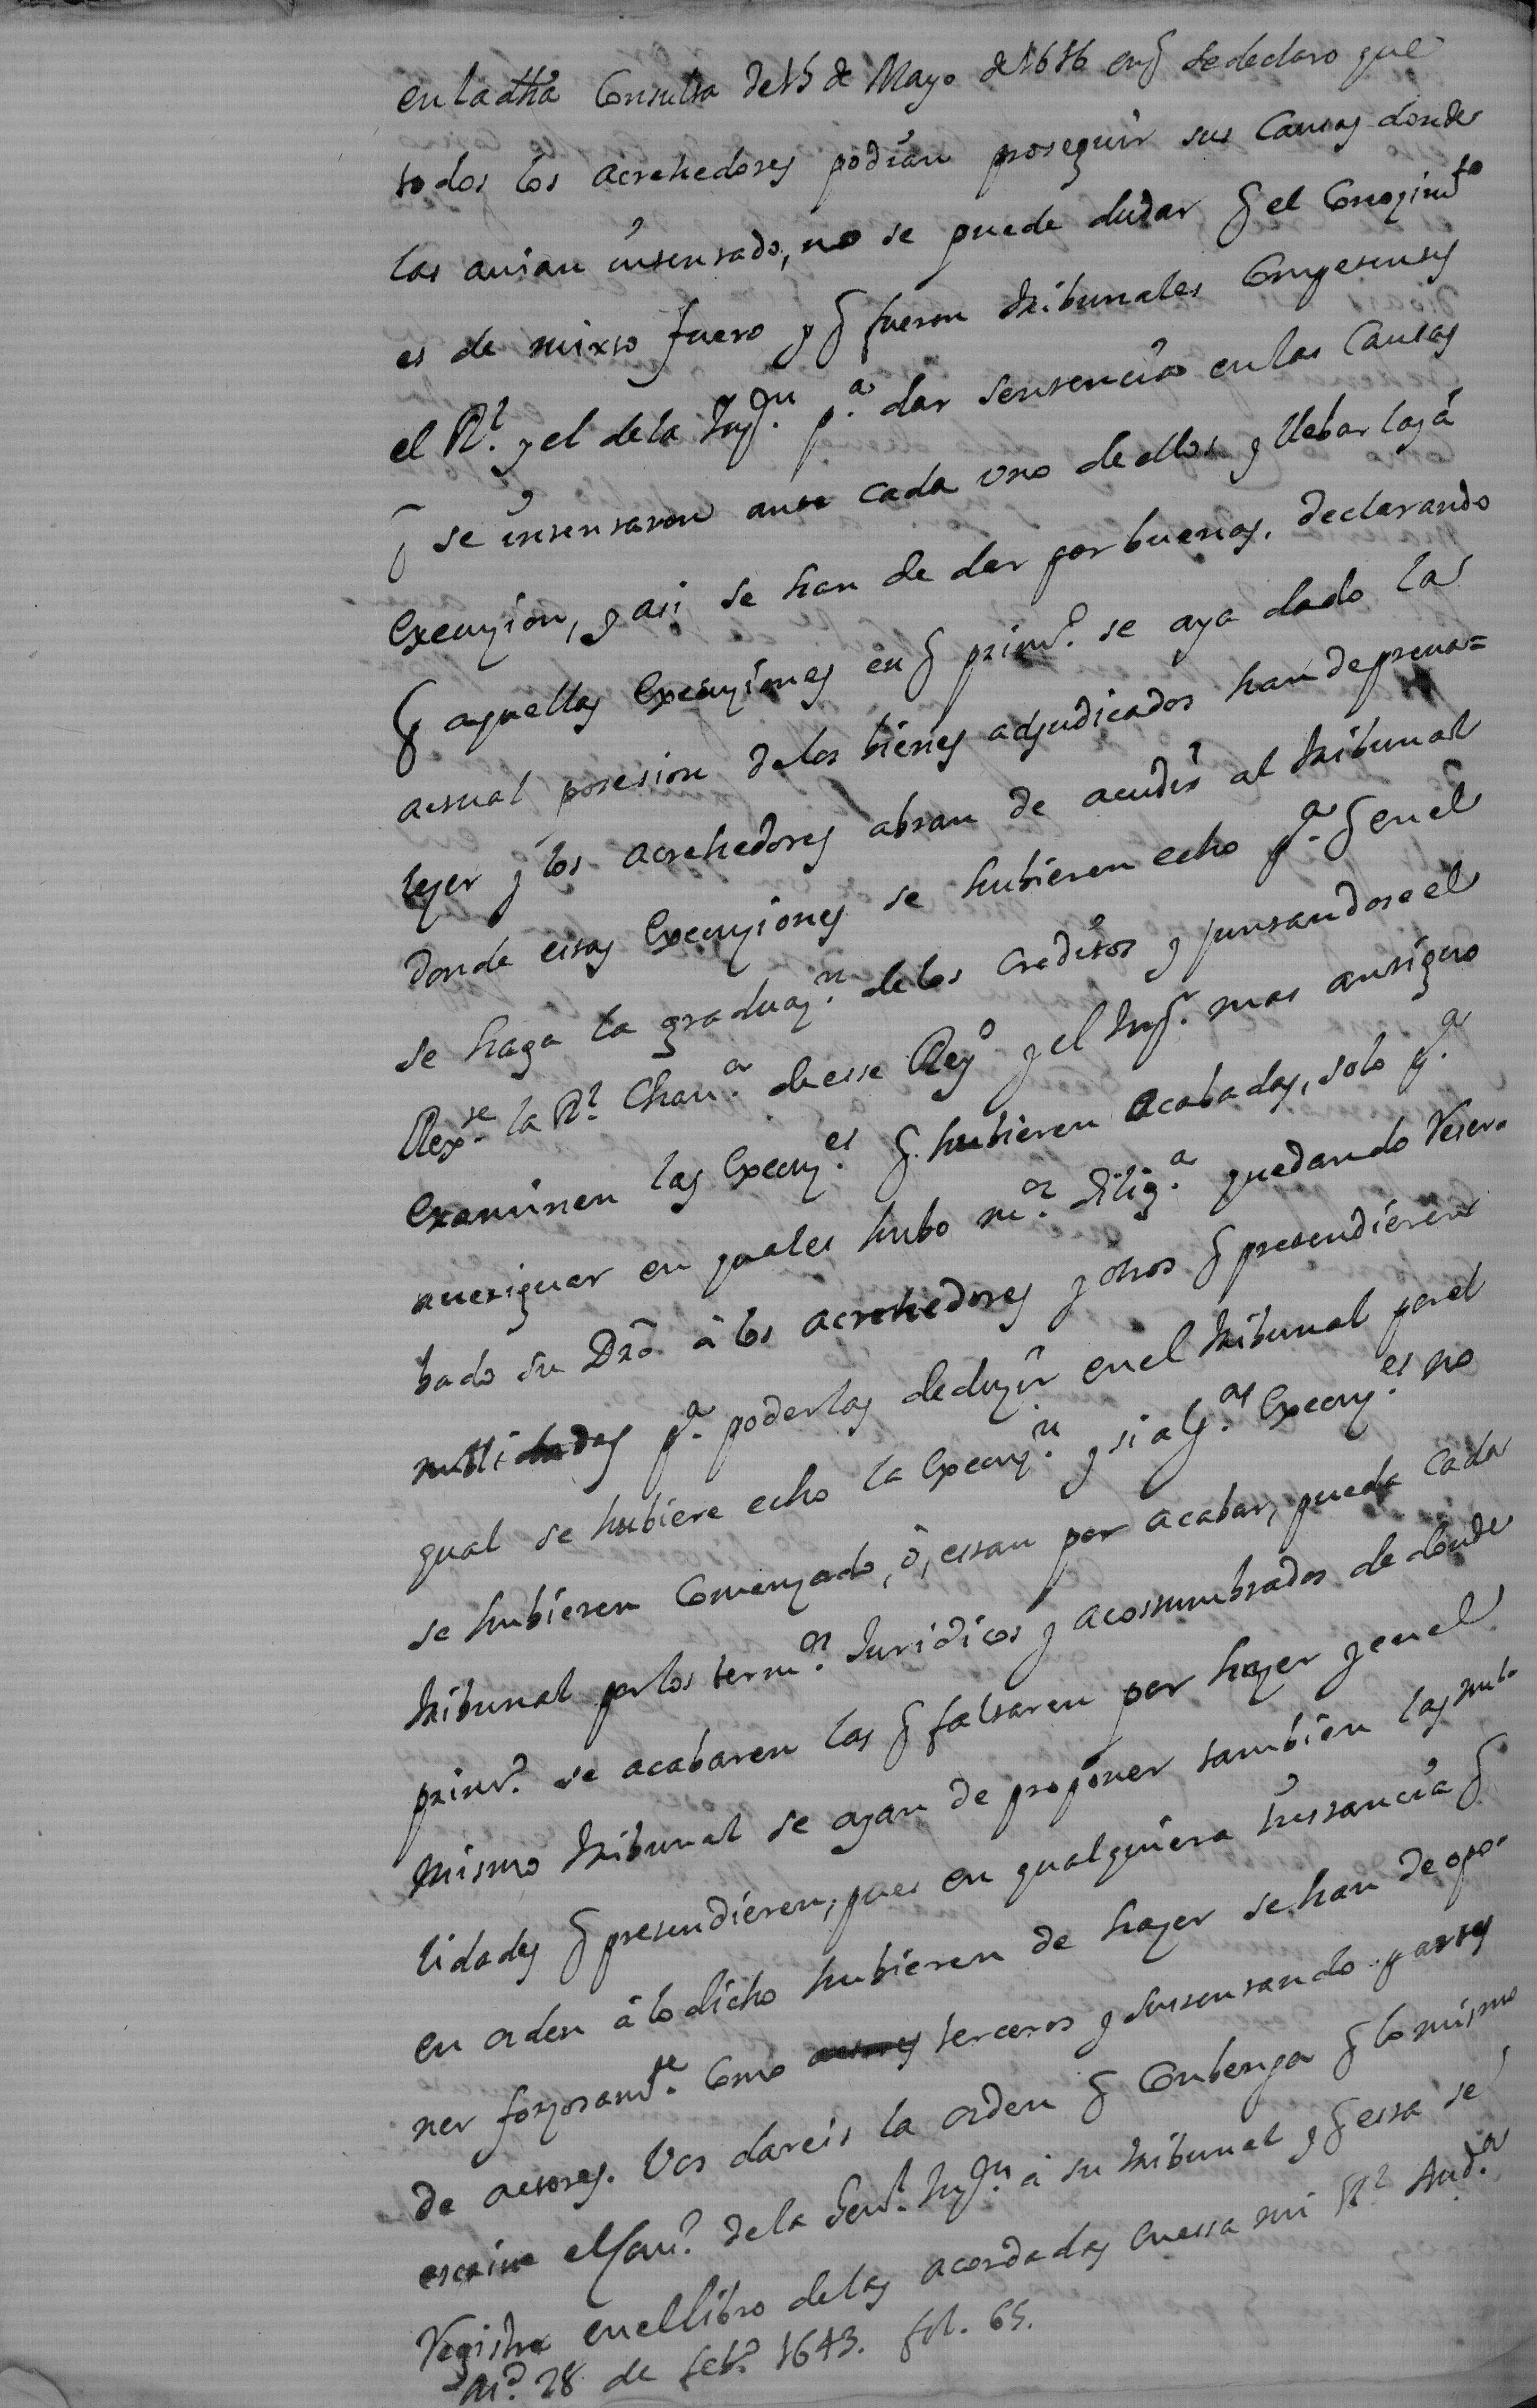 en la dha Consulta de 15 de Mayo de 1616 en q̃ se declaro que
todos los acrehedores podian proseguir sus Causas donde
las auian intentado, no se puede dudar q̃ el Conozimto
es de mixto fuero y q̃ fueron tribunales Competentes
el Rl. y el de la Inqn. pa. dar sentencia en las Causas
q̃ se intentaron ante cada vno de ellos y llebarlas á
execuzion, y asi se han de dar por buenas, declarando
q̃ aquellas execuziones en q̃ primo. se aya dado la
actual posesion de los bienes adjudicados han de preua=
lezer y los acrehedores abran de acudir al tribunal
donde estas execuziones se hubieren echo pa. q̃ en el
se haga la graduazn. de los creditos y juntandose el
Rexte. la Rl. Chana. de esse Reyo. y el Inqr. mas antiguo
examinen las execuzes. q̃ hubieren acabadas, solo pa.
aueriguar en quales hubo mor. diliga. quedando reser-
bado su Dro. á los acrehedores y otros q̃ pretendieren
nullidades pa. poderlas deduzir en el tribunal por el
qual se hubiere echo la execuzn. y si algas. execuzes. no
se hubieren Comenzado, ó, estan por acabar, pueda cada
tribunal por los termos. Juridicos y acostumbrados de donde
primo. se acabaren las q̃ faltaren por hazer y en el
mismo tribunal se ayan de proponer tambien las nul-
lidades q̃ pretendieren, pues en qualquiera instancia q̃
en orden á lo dicho hubieren de hazer se han de opo-
ner forzosamte. Como terceros y sustentando partes
de actores. Vos dareis la orden q̃ Conbenga q̃ lo mismo
escriue el Conso. de la Genl. Inqn. á su tribunal y q̃ esta se
registre en el libro de las acordadas en essa mi Rl. Auda.
Md. 28 de febo. 1643. fol. 65.